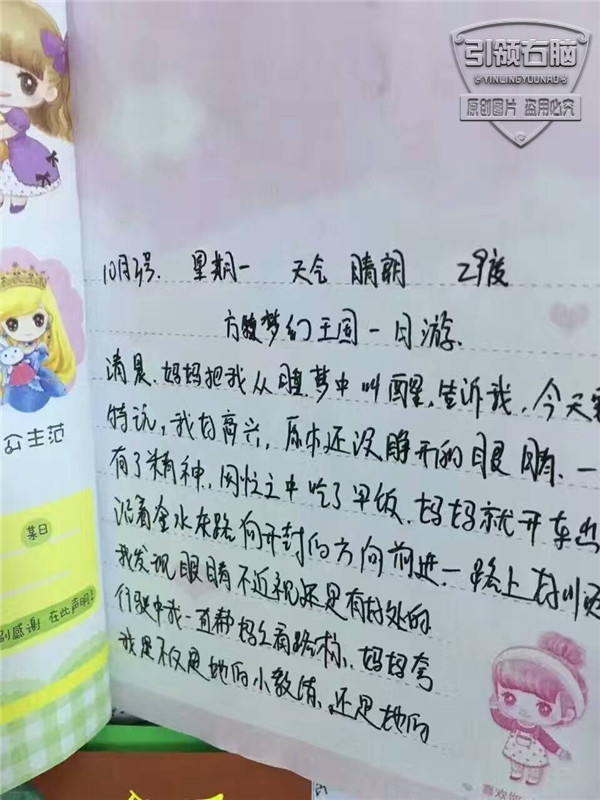 引领右脑
YINLINGYOUNAO
原创图片 盗用必究
10月3号. 星期一 天气 晴朗 29度
方特梦幻王国一日游.
清晨.妈妈把我从睡梦中叫醒.告诉我.今天要
特玩,我好高兴,原本还没睁开的眼睛.一
有了精神.匆忙之中吃了早饭.妈妈就开车
沿着金水东路向开封的方向前进.一路上
我发现眼睛不近视还是有好处的
行驶中我一直帮妈妈看路标.妈妈夸
我是不仅是她的小教练.还是她的
公主范
某日
别感谢 在此声明!
喜欢你